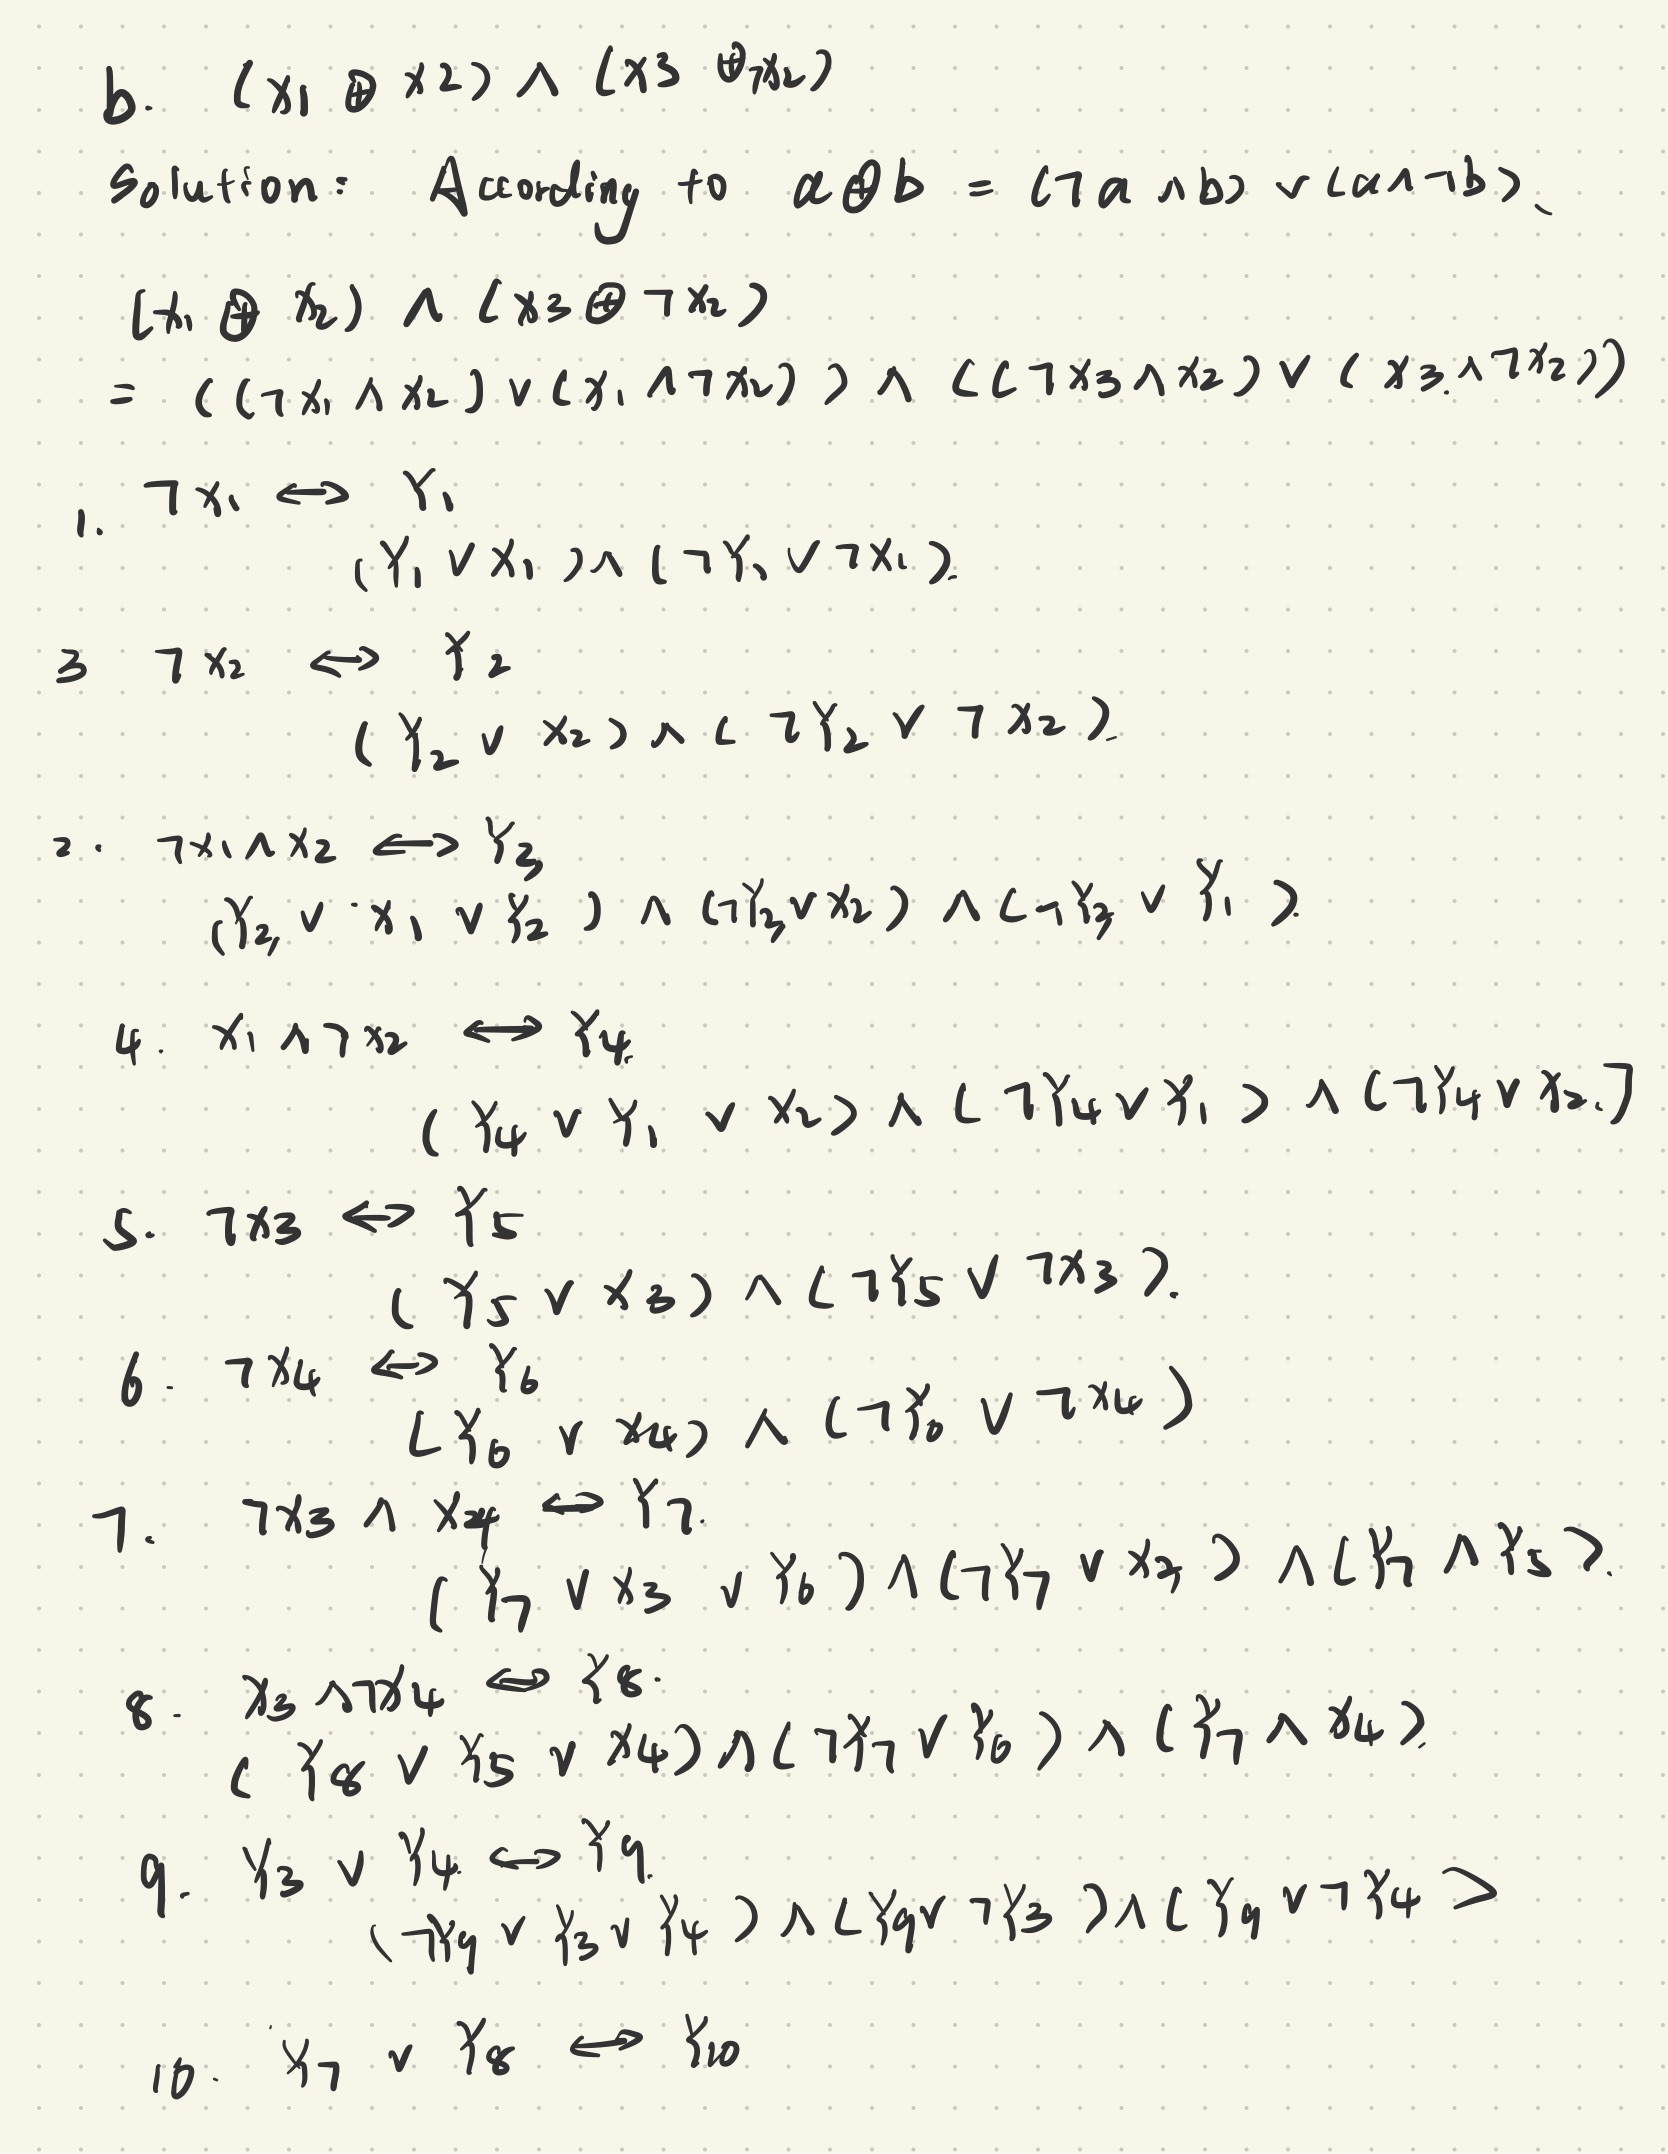 b. (x1 ⊕ x2) ∧ (x3 ⊕ ¬x2)
Solution: According to a⊕b = (¬a ∧ b) ∨ (a ∧ ¬b).
(x1 ⊕ x2) ∧ (x3 ⊕ ¬x2)
= ((¬x1 ∧ x2) ∨ (x1 ∧ ¬x2)) ∧ ((¬x3 ∧ x2) ∨ (x3 ∧ ¬x2))
1. ¬x1 ↔ Y1
(Y1 ∨ x1) ∧ (¬Y1 ∨ ¬x1).
3 ¬x2 ↔ Y2
(Y2 ∨ x2) ∧ (¬Y2 ∨ ¬x2).
2. ¬x1 ∧ x2 ↔ Y3
(Y3 ∨ x1 ∨ Y2) ∧ (¬Y3 ∨ x2) ∧ (¬Y3 ∨ Y1).
4. x1 ∧ ¬x2 ↔ Y4.
(Y4 ∨ Y1 ∨ x2) ∧ (¬Y4 ∨ Y1) ∧ (¬Y4 ∨ x2.]
5. ¬x3 ↔ Y5
(Y5 ∨ x3) ∧ (¬Y5 ∨ ¬x3).
6. ¬x4 ↔ Y6
(Y6 ∨ x4) ∧ (¬Y6 ∨ ¬x4)
7. ¬x3 ∧ x4 ↔ Y7.
(Y7 ∨ x3 ∨ Y6) ∧ (¬Y7 ∨ x2) ∧ (Y7 ∧ Y5).
8. x3 ∧ ¬x4 ↔ Y8.
(Y8 ∨ Y5 ∨ x4) ∧ (¬Y7 ∨ Y6) ∧ (Y7 ∧ x4).
9. Y3 ∨ Y4 ↔ Y9.
(¬Y9 ∨ Y3 ∨ Y4) ∧ (Y9 ∨ ¬Y3) ∧ (Y9 ∨ ¬Y4)
10. Y7 ∨ Y8 ↔ Y10